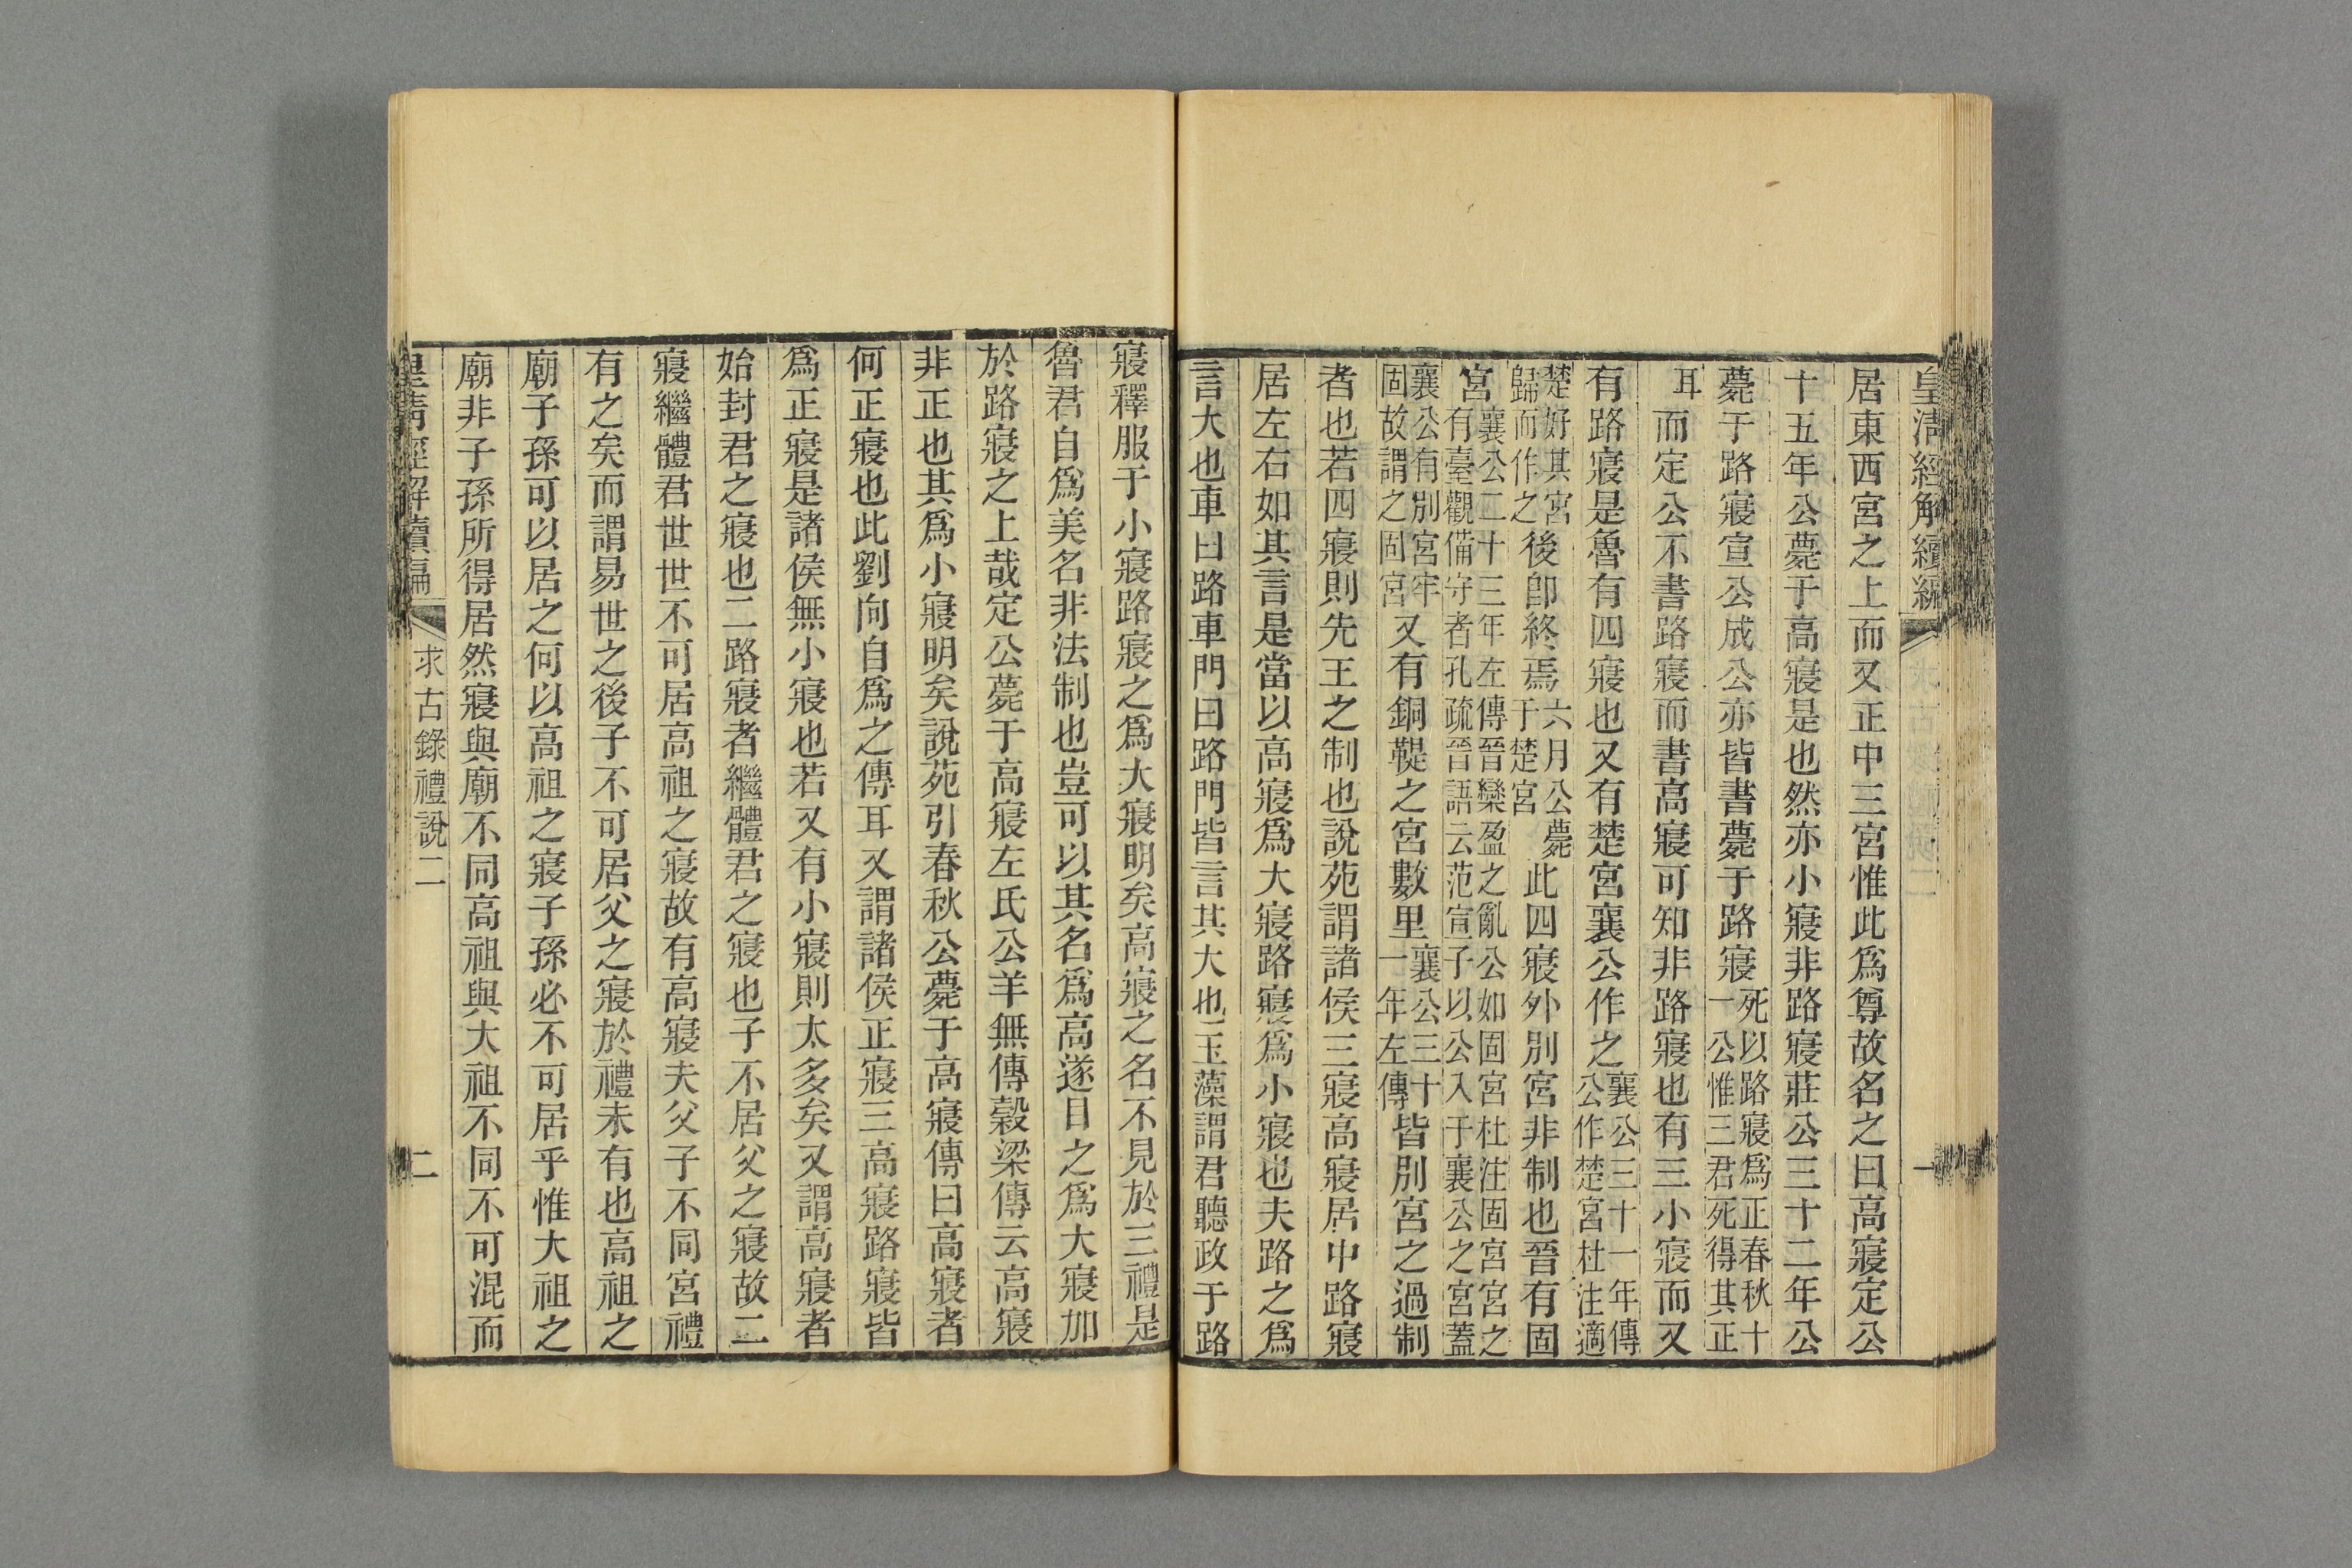 皇清經解續編
一
居東西宮之上而又正中三宮惟此爲尊故名之曰高寢定公
十五年公薨于高寢是也然亦小寢非路寢莊公三十二年公
薨于路寢宣公成公亦皆書薨于路寢死以路寢爲正春秋十一公惟三君死得其正
耳而定公不書路寢而書高寢可知非路寢也有三小寢而又
有路寢是魯有四寢也又有楚宮襄公作之襄公三十一年傳公作楚宮杜注適
楚好其宮歸而作之後卽終焉六月公薨于楚宮此四寢外別宮非制也晉有固
宮襄公二十三年左傳晉欒盈之亂公如固宮杜注固宮宮之有臺觀備守者孔疏晉語云范宣子以公入于襄公之宮蓋
襄公有別宮牢固故謂之固宮又有銅鞮之宮數里襄公三十一年左傳皆別宮之過制
者也若四寢則先王之制也說苑謂諸侯三寢高寢居中路寢
居左右如其言是當以高寢爲大寢路寢爲小寢也夫路之爲
言大也車曰路車門曰路門皆言其大也玉藻謂君聽政于路
寢釋服于小寢路寢之爲大寢明矣高寢之名不見於三禮是
魯君自爲美名非法制也豈可以其名爲高遂目之爲大寢加
於路寢之上哉定公薨于高寢左氏公羊無傳穀梁傳云高寢
非正也其爲小寢明矣說苑引春秋公薨于高寢傳曰高寢者
何正寢也此劉向自爲之傳耳又謂諸侯正寢三高寢路寢皆
爲正寢是諸侯無小寢也若又有小寢則太多矣又謂高寢者
始封君之寢也二路寢者繼體君之寢也子不居父之寢故二
寢繼體君世世不可居高祖之寢故有高寢夫父子不同宮禮
有之矣而謂易世之後子不可居父之寢於禮未有也高祖之
廟子孫可以居之何以高祖之寢子孫必不可居乎惟大祖之
廟非子孫所得居然寢與廟不同高祖與大祖不同不可混而
皇清經解續編
求古錄禮說二
二